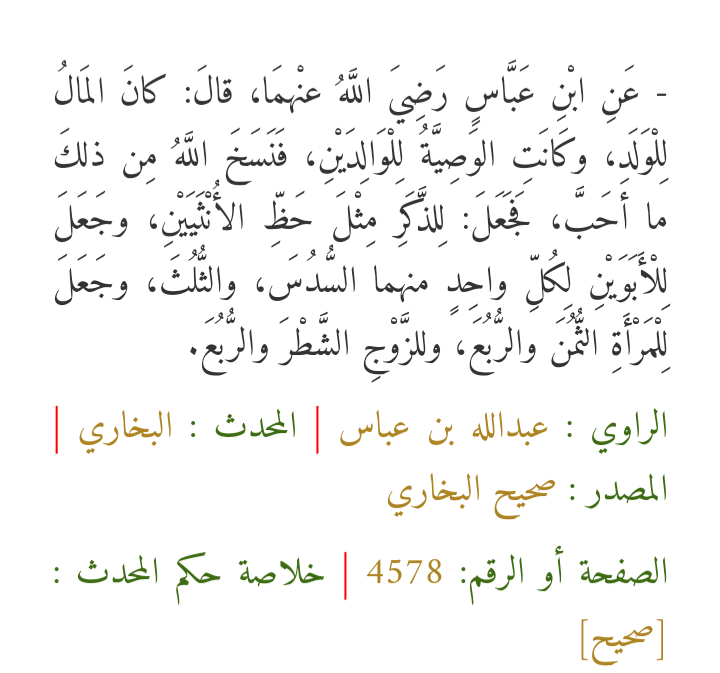 - عَنِ ابْنِ عَبَّاسٍ رَضِيَ اللَّهُ عنْهمَا، قالَ: كانَ المَالُ
لِلْوَلَدِ، وكَانَتِ الوَصِيَّةُ لِلْوَالِدَيْنِ، فَنَسَخَ اللَّهُ مِن ذلكَ
ما أحَبَّ، فَجَعَلَ: لِلذَّكَرِ مِثْلَ حَظِّ الأُنْثَيَيْنِ، وجَعَلَ
لِلْأَبَوَيْنِ لِكُلِّ واحِدٍ منهما السُّدُسَ، والثُّلُثَ، وجَعَلَ
لِلْمَرْأَةِ الثُّمُنَ والرُّبُعَ، وللزَّوْجِ الشَّطْرَ والرُّبُعَ.
الراوي : عبدالله بن عباس | المحدث : البخاري |
المصدر : صحيح البخاري
الصفحة أو الرقم: 4578 | خلاصة حكم المحدث :
[صحيح]